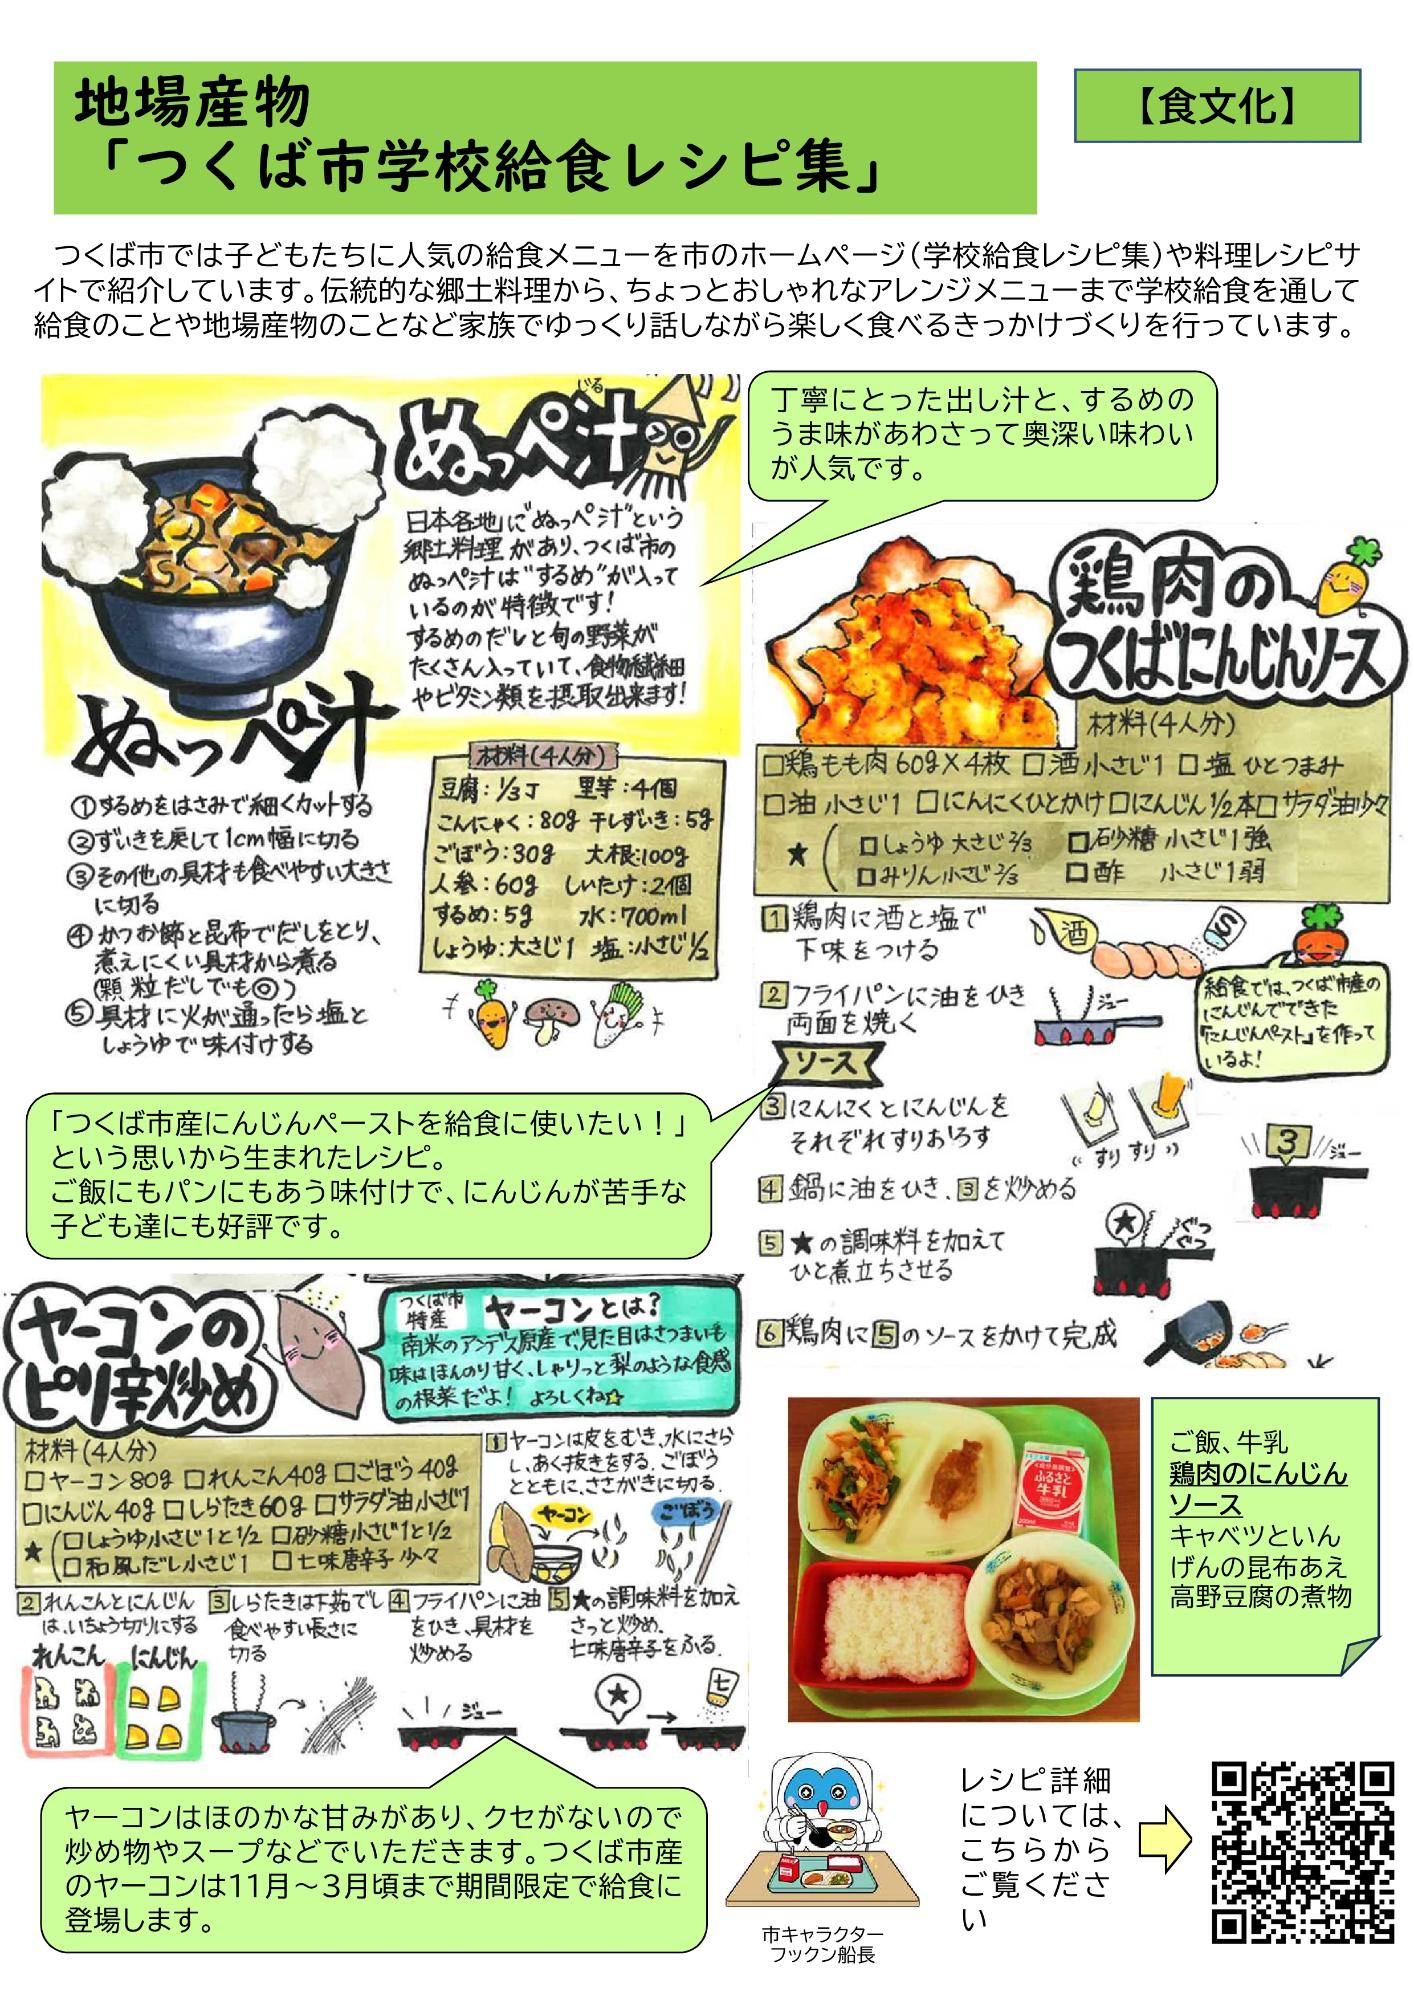 地場産物
「つくば市学校給食レシピ集」
【食文化】
つくば市では子どもたちに人気の給食メニューを市のホームページ（学校給食レシピ集）や料理レシピサ
イトで紹介しています。伝統的な郷土料理から、ちょっとおしゃれなアレンジメニューまで学校給食を通して
給食のことや地場産物のことなど家族でゆっくり話しながら楽しく食べるきっかけづくりを行っています。
じる
ぬっぺ汁
日本各地に"ぬっぺ汁"という
郷土料理があり、つくば市の
ぬっぺ汁は"するめ"が入って
いるのが特徴です!
するめのだしと旬の野菜が
たくさん入っていて、食物繊維
やビタミン類を摂取出来ます!
ぬっぺ汁
①するめをはさみで細くカットする
②ずいきを戻して1cm幅に切る
③その他の具材も食べやすい大きさ
に切る
④かつお節と昆布でだしをとり、
煮えにくい具材から煮る
(顆粒だしでも◎)
⑤具材に火が通ったら塩と
しょうゆで味付けする
材料(4人分)
豆腐:1/3丁 里芋:4個
こんにゃく:80g 干しずいき:5g
ごぼう:30g 大根:100g
人参:60g しいたけ:2個
するめ:5g 水:700ml
しょうゆ:大さじ1 塩:小さじ1/2
丁寧にとった出し汁と、するめの
うま味があわさって奥深い味わい
が人気です。
鶏肉の
つくばにんじんソース
材料(4人分)
□鶏もも肉60g×4枚 □酒 小さじ1 □塩 ひとつまみ
□油 小さじ1 □にんにくひとかけ □にんじん1/2本 □サラダ油少々
★( □しょうゆ 大さじ2/3 □砂糖 小さじ1強
□みりん小さじ2/3 □酢 小さじ1弱
1 鶏肉に酒と塩で
下味をつける
酒
S
2 フライパンに油をひき
両面を焼く
ジュー
給食では、つくば市産の
にんじんでできた
「にんじんペースト」を作って
いるよ!
ソース
3 にんにくとにんじんを
それぞれすりおろす
すりすり
4 鍋に油をひき、3を炒める
3
ジュー
5 ★の調味料を加えて
ひと煮立ちさせる
★
ぐつ
ぐつ
6 鶏肉に5のソースをかけて完成
「つくば市産にんじんペーストを給食に使いたい！」
という思いから生まれたレシピ。
ご飯にもパンにもあう味付けで、にんじんが苦手な
子ども達にも好評です。
ヤーコンの
ピリ辛炒め
つくば市
特産
ヤーコンとは?
南米のアンデス原産で、見た目はさつまいも
味はほんのり甘く、しゃりっと梨のような食感
の根菜だよ! よろしくね☆
材料(4人分)
□ヤーコン80g □れんこん40g □ごぼう40g
□にんじん40g □しらたき60g □サラダ油小さじ1
★( □しょうゆ小さじ1と1/2 □砂糖小さじ1と1/2
□和風だし小さじ1 □七味唐辛子 少々
1 ヤーコンは皮をむき、水にさら
し、あく抜きをする。ごぼう
とともに、ささがきに切る。
ヤーコン
ごぼう
2 れんこんとにんじん
は、いちょう切りにする
れんこん にんじん
3 しらたきは下茹でし
食べやすい長さに
切る
4 フライパンに油
をひき、具材を
炒める
ジュー
5 ★の調味料を加え
さっと炒め、
七味唐辛子をふる。
★
七
ヤーコンはほのかな甘みがあり、クセがないので
炒め物やスープなどでいただきます。つくば市産
のヤーコンは11月～3月頃まで期間限定で給食に
登場します。
ふるさと
牛乳
ご飯、牛乳
鶏肉のにんじん
ソース
キャベツといん
げんの昆布あえ
高野豆腐の煮物
市キャラクター
フックン船長
レシピ詳細
については、
こちらから
ご覧くださ
い